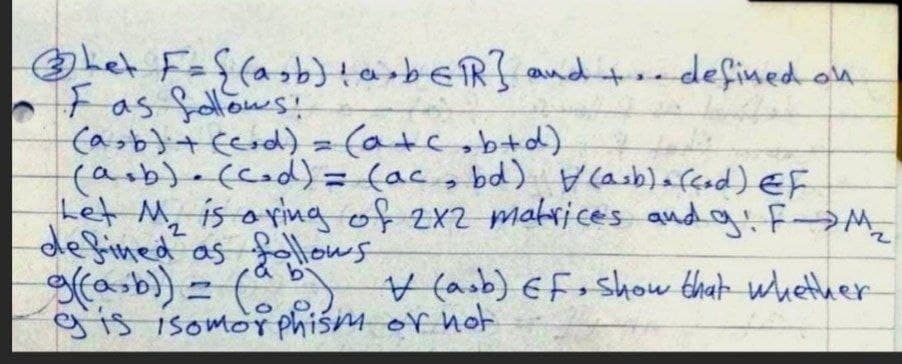 ③ Let F = {(a,b) : a,b ∈ ℝ} and +, . defined on
F as follows:
(a,b) + (c,d) = (a+c, b+d)
(a,b) . (c,d) = (ac, bd) ∀ (a,b), (c,d) ∈ F
Let M₂ is a ring of 2×2 matrices and g: F → M₂
defined as follows
g((a,b)) = (a b
0 0) ∀ (a,b) ∈ F, show that whether
g is isomorphism or not